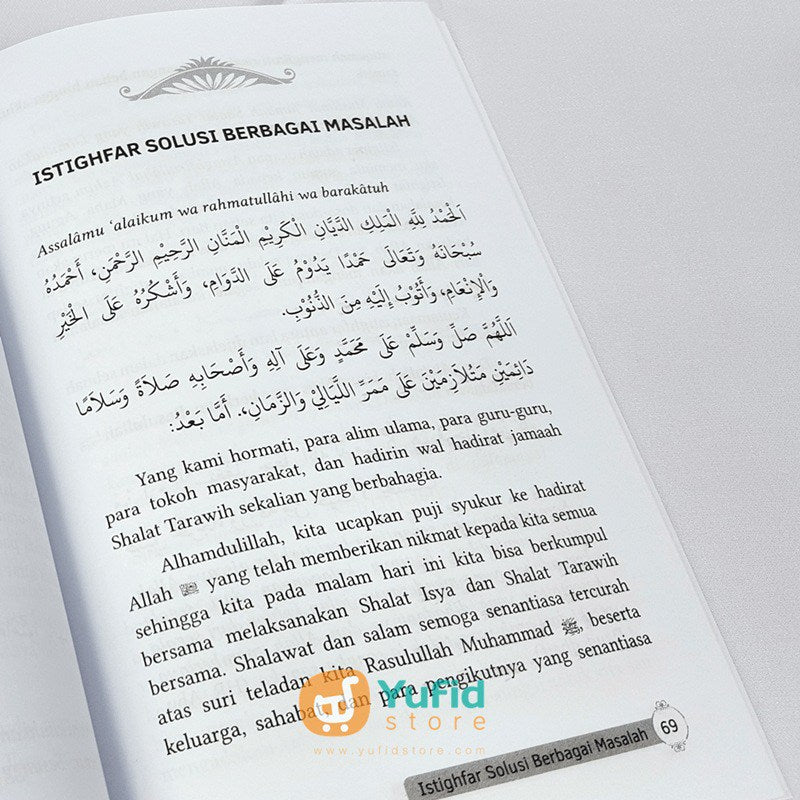 ISTIGHFAR SOLUSI BERBAGAI MASALAH
Assalâmu ‘alaikum wa rahmatullâhi wa barakâtuh
اَلْحَمْدُ لِلَّهِ الْمَلِكِ الدَّيَّانِ الْكَرِيْمِ الْمَنَّانِ الرَّحِيْمِ الرَّحْمَنِ، أَحْمَدُهُ
سُبْحَانَهُ وَتَعَالَى حَمْدًا يَدُوْمُ عَلَى الدَّوَامِ، وَأَشْكُرُهُ عَلَى الْخَيْرِ
وَالْإِنْعَامِ، وَأَتُوْبُ إِلَيْهِ مِنَ الذُّنُوْبِ.
اَللّٰهُمَّ صَلِّ وَسَلِّمْ عَلَى مُحَمَّدٍ وَعَلَى آلِهِ وَأَصْحَابِهِ صَلَاةً وَسَلَامًا
دَائِمَيْنِ مُتَلَازِمَيْنِ عَلَى مَمَرِّ اللَّيَالِيْ وَالزَّمَانِ. أَمَّا بَعْدُ:
Yang kami hormati, para alim ulama, para guru-guru,
para tokoh masyarakat, dan hadirin wal hadirat jamaah
Shalat Tarawih sekalian yang berbahagia.
Alhamdulillah, kita ucapkan puji syukur ke hadirat
Allah ﷻ yang telah memberikan nikmat kepada kita semua
sehingga kita pada malam hari ini kita bisa berkumpul
bersama melaksanakan Shalat Isya dan Shalat Tarawih
bersama. Shalawat dan salam semoga senantiasa tercurah
atas suri teladan kita Rasulullah Muhammad ﷺ, beserta
keluarga, sahabat, dan para pengikutnya yang senantiasa
Yufid
store
www.yufidstore.com
Istighfar Solusi Berbagai Masalah 69